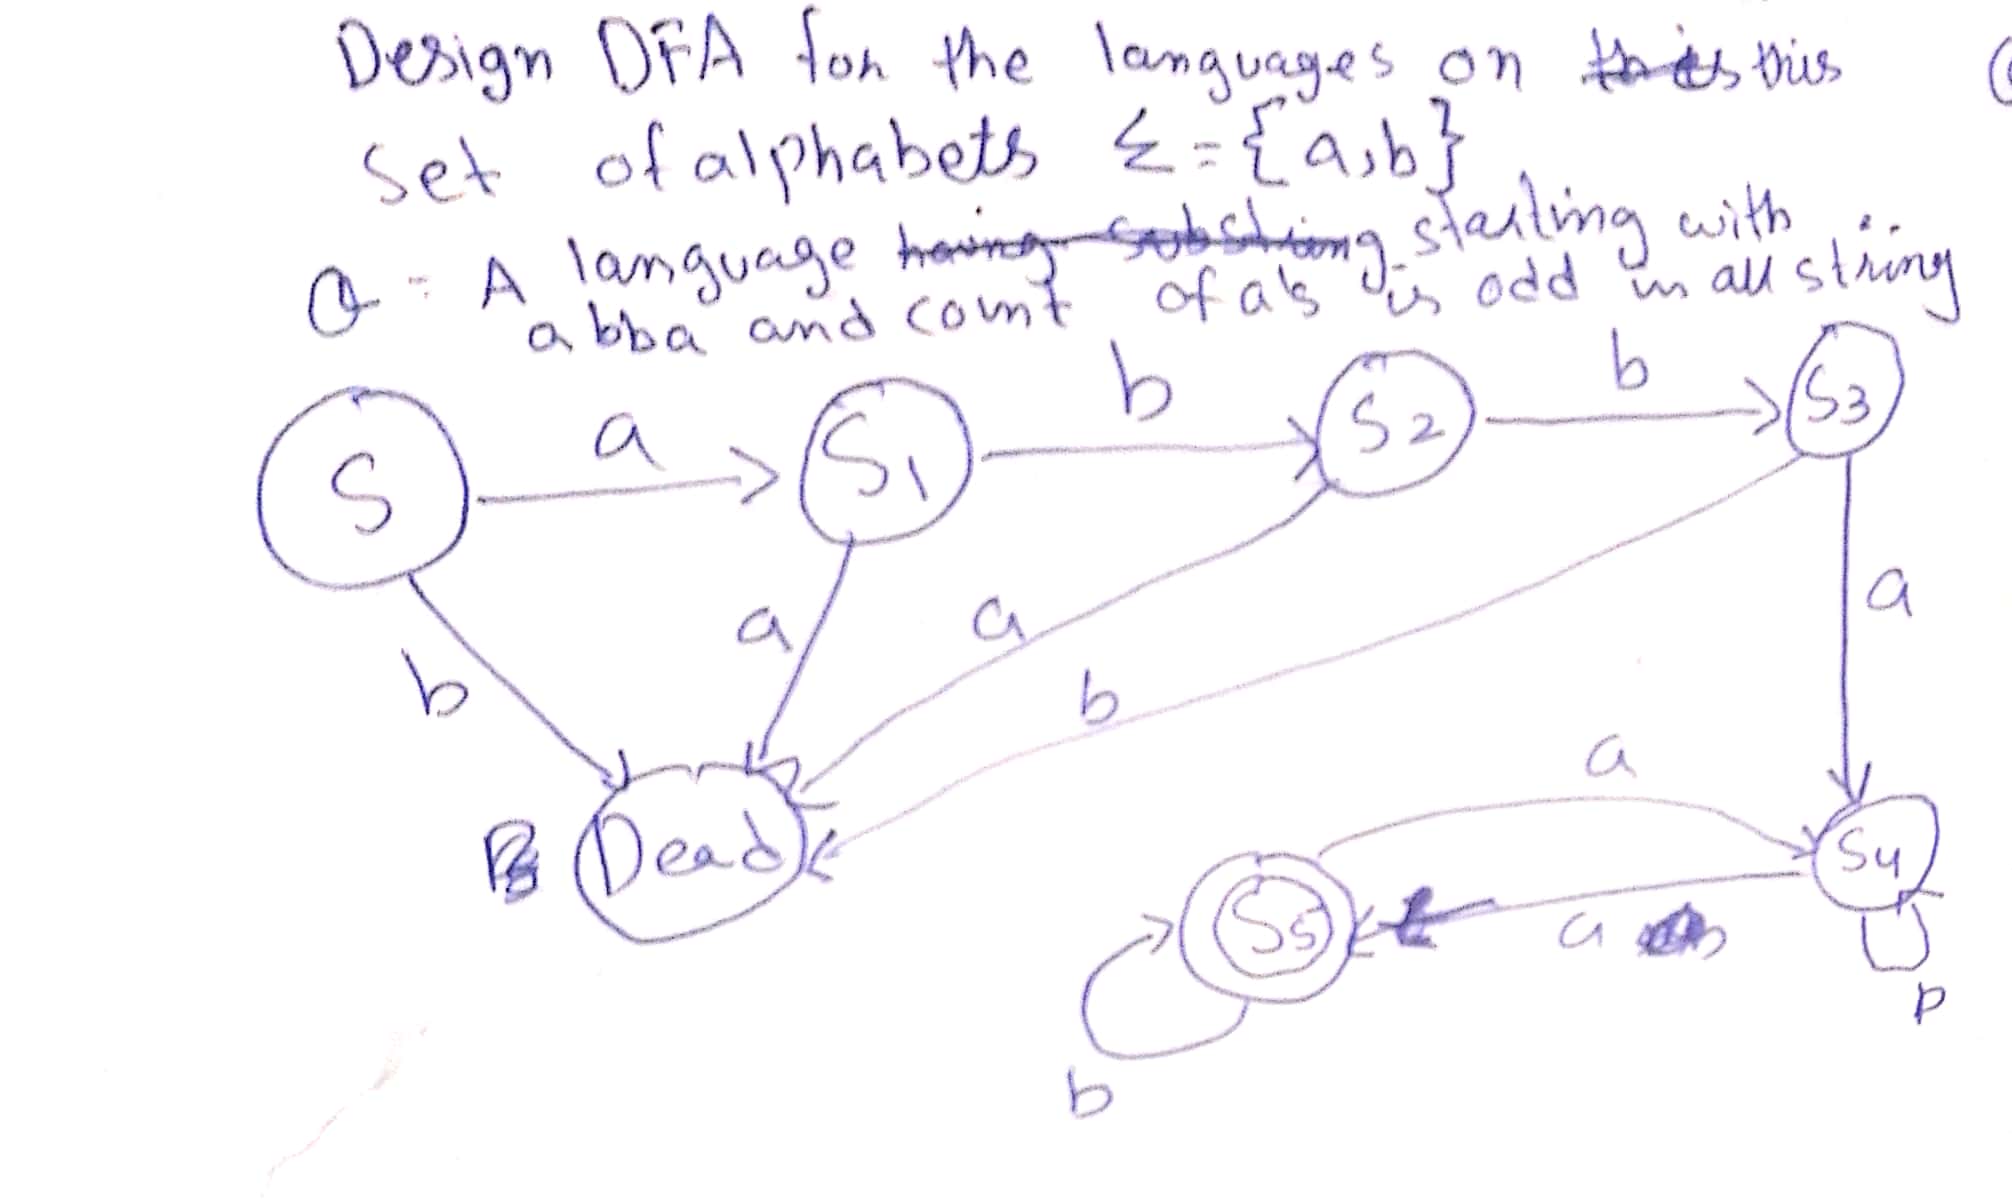 Design DFA for the languages on this
Set of alphabets Σ = {a,b}
Q - A language having substring starting with
abba and count of a's is odd in all string
b
b
a
S
S1
S2
S3
a
a
a
b
b
a
Dead
S4
S5
a
b
b